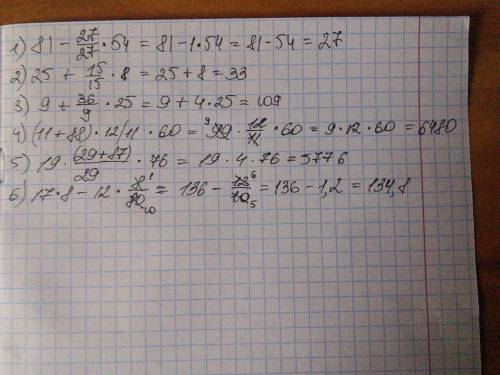 1) 81 - 27/27 · 54 = 81 - 1 · 54 = 81 - 54 = 27
2) 25 + 15/15 · 8 = 25 + 8 = 33
3) 9 + 36/9 · 25 = 9 + 4 · 25 = 109
4) (11 + 88) · 12/11 · 60 = ⁹99 · 12/11 · 60 = 9 · 12 · 60 = 6480
5) 19 · (29+87)/29 · 76 = 19 · 4 · 76 = 5776
6) 17 · 8 - 12 · 8¹/80₁₀ = 136 - 12⁶/10₅ = 136 - 1,2 = 134,8